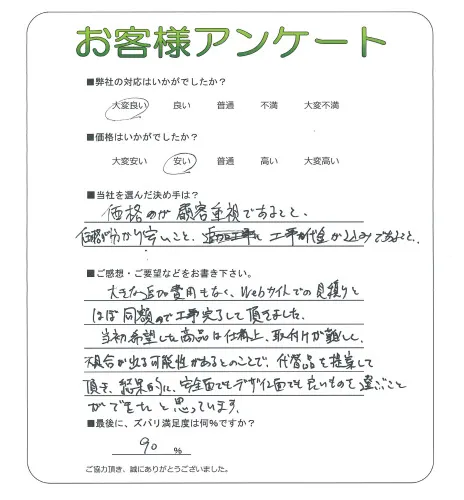 お客様アンケート
■弊社の対応はいかがでしたか？
大変良い 良い 普通 不満 大変不満
■価格はいかがでしたか？
大変安い 安い 普通 高い 大変高い
■当社を選んだ決め手は？
価格 が 顧客重視であること、
価格が分かり安いこと、 工事代金が込みであること、
■ご感想・ご要望などをお書き下さい。
大きな追加費用もなく、Webサイトでの見積りと
ほぼ同額ので工事完了して頂きました。
当初希望した商品は仕様上、取付けが難しく、
不具合が出る可能性があるとのことで、代替品を提案して
頂き、結果的に、安全面でもデザイン面でも良いものを選ぶこと
ができたと思っています。
■最後に、ズバリ満足度は何％ですか？
90 ％
ご協力頂き、誠にありがとうございました。